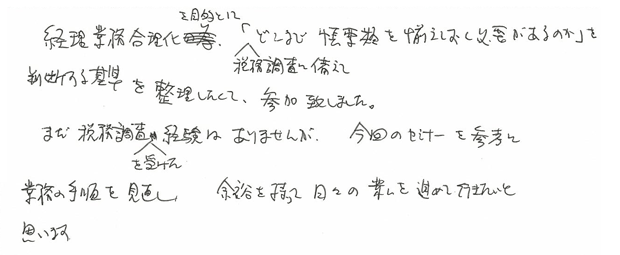 を目的とし
経理業務合理化、「どこまで帳票類を揃えておく必要があるのか」を
税務調査に備え
判断する基準を整理したくて、参加致しました。
まだ税務調査 経験はありませんが、今回のセミナーを参考に
を受けた
業務の手順を見直し、余裕を持って日々の業務を進めて行きたいと
思います